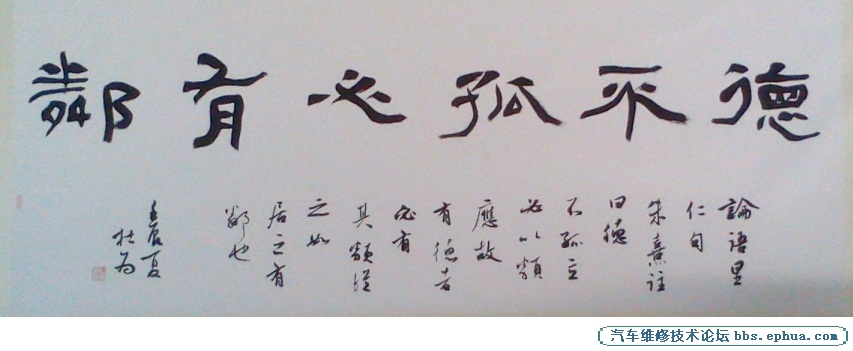 德不孤必有鄰
論語里
仁句
朱熹註
曰德
不孤立
必以類
應故
有德者
必有
其類從
之如
居之有
鄰也
壬辰夏
汽车维修技术论坛 bbs.ephua.com